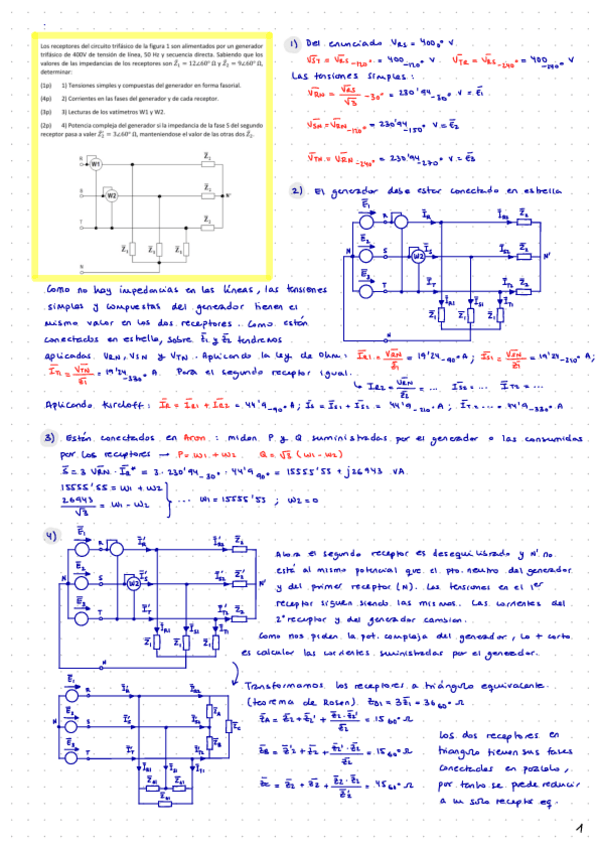 Los receptores del circuito trifásico de la figura 1 son alimentados por un generador
trifásico de 400V de tensión de línea, 50 Hz y secuencia directa. Sabiendo que los
valores de las impedancias de los receptores son Z̄₁ = 12∠60° Ω y Z̄₂ = 9∠60° Ω,
determinar:
(1p) 1) Tensiones simples y compuestas del generador en forma fasorial.
(4p) 2) Corrientes en las fases del generador y de cada receptor.
(3p) 3) Lecturas de los vatímetros W1 y W2.
(2p) 4) Potencia compleja del generador si la impedancia de la fase S del segundo
receptor pasa a valer Z̄₂' = 3∠60° Ω, manteniendose el valor de las otras dos Z̄₂.
R W1 Z̄₂
S W2 Z̄₂ N'
T Z̄₂
Z̄₁ Z̄₁ Z̄₁
N
1) Del enunciado V̄RS = 400₀° V.
V̄ST = V̄RS₋₁₂₀° = 400₋₁₂₀° V V̄TR = V̄RS₋₂₄₀° = 400₋₂₄₀° V
Las tensiones simples:
V̄RN = V̄RS/√3 ₋₃₀° = 230'94₋₃₀° V = Ē₁
V̄SN = V̄RN₋₁₂₀° = 230'94₋₁₅₀° V = Ē₂
V̄TN = V̄RN₋₂₄₀° = 230'94₋₂₇₀° V = Ē₃
2) El generador debe estar conectado en estrella
Ē₁ R ĪR ĪR2 Z̄₂
N Ē₂ S W2 ĪS ĪS2 Z̄₂ N'
Ē₃ T ĪT ĪT2 Z̄₂
ĪR1 ĪS1 ĪT1
Z̄₁ Z̄₁ Z̄₁
N
Como no hay impedancias en las líneas, las tensiones
simples y compuestas del generador tienen el
mismo valor en los dos receptores. Como están
conectados en estrella, sobre Z̄₁ y Z̄₂ tendremos
aplicadas VRN, VSN y VTN. Aplicando la ley de Ohm: ĪR1 = V̄RN/Z̄₁ = 19'24₋₉₀° A; ĪS1 = V̄SN/Z̄₁ = 19'24₋₂₁₀° A;
ĪT1 = V̄TN/Z̄₁ = 19'24₋₃₃₀° A. Para el segundo receptor igual.
↳ ĪR2 = V̄RN/Z̄₂ = ... ĪS2 = ... ĪT2 = ...
Aplicando Kircloff: ĪR = ĪR1 + ĪR2 = 44'9₋₉₀° A; ĪS = ĪS1 + ĪS2 = 44'9₋₂₁₀° A; ĪT = ... = 44'9₋₃₃₀° A
3) Están conectados en Aron: miden P y Q suministradas por el generador o las consumidas
por los receptores → P = W1 + W2 Q = √3 (W1 - W2)
S̄ = 3 V̄RN · ĪR* = 3 · 230'94₋₃₀° · 44'9₉₀° = 15555'55 + j26943 VA.
15555'55 = W1 + W2
26943/√3 = W1 - W2
... W1 = 15555'55; W2 = 0
4)
Ē₁ R Ī'R Ī'R2 Z̄₂
Ē₂ S W2 Ī'S Z̄₂' N'
Ē₃ T Ī'T Z̄₂
ĪR1 ĪS1 ĪT1
Z̄₁ Z̄₁ Z̄₁
N
Ahora el segundo receptor es desequilibrado y N' no
está al mismo potencial que el pto. neutro del generador
y del primer receptor (N). Las tensiones en el 1er
receptor siguen siendo las mismas. Las corrientes del
2º receptor y del generador cambian.
Como nos piden la pot. compleja del generador, lo + corto
es calcular las corrientes suministradas por el generador.
Transformamos los receptores a triángulo equivalente.
(teorema de Rosen) Z̄Δ1 = 3Z̄₁ = 36₆₀° Ω
Z̄A = Z̄₂ + Z̄₂' + Z̄₂·Z̄₂'/Z̄₂ = 15₆₀° Ω
Z̄B = Z̄₂' + Z̄₂ + Z̄₂'·Z̄₂/Z̄₂ = 15₆₀° Ω
Z̄C = Z̄₂ + Z̄₂ + Z̄₂·Z̄₂/Z̄₂' = 45₆₀° Ω
Los dos receptores en
triángulo tienen sus fases
conectadas en paralelo,
por tanto se puede reducir
a un solo receptor eq.
1